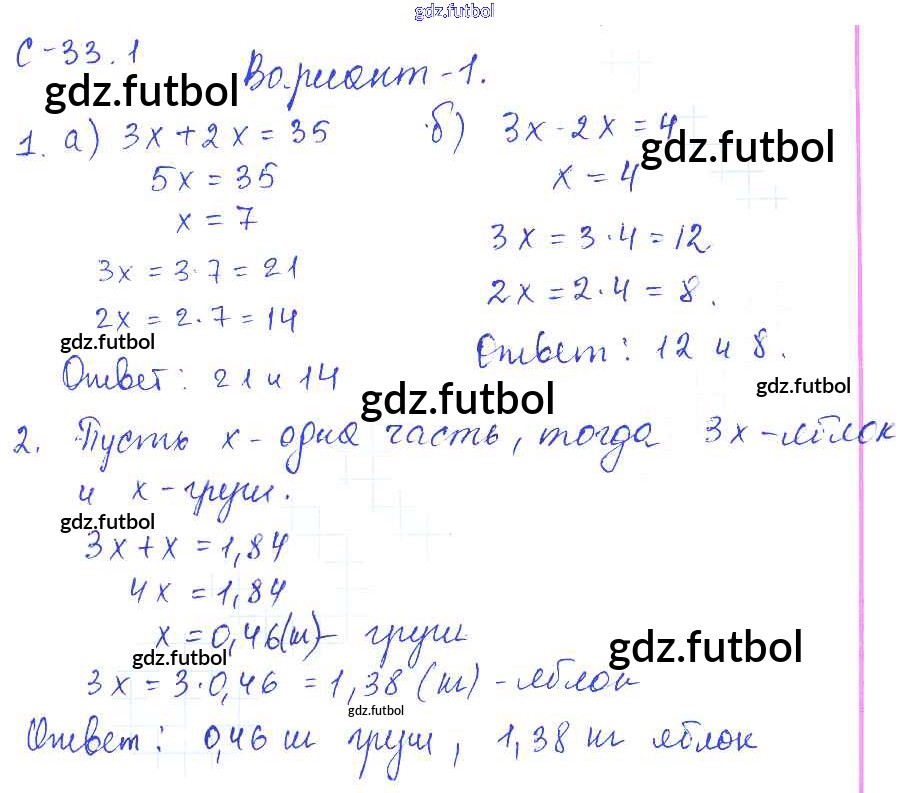 gdz.futbol
С-33.1
Вариант-1.
gdz.futbol
1. а) 3x + 2x = 35
5x = 35
x = 7
3x = 3·7 = 21
2x = 2·7 = 14
gdz.futbol
Ответ: 21 и 14
б) 3x - 2x = 4
gdz.futbol
x = 4
3x = 3·4 = 12
2x = 2·4 = 8.
Ответ: 12 и 8.
gdz.futbol
gdz.futbol
2. Пусть x - одна часть, тогда 3x - яблок
и x - груш.
gdz.futbol
3x + x = 1,84
4x = 1,84
x = 0,46 (т) - груш
gdz.futbol
gdz.futbol
3x = 3·0,46 = 1,38 (т) - яблок
gdz.futbol
Ответ: 0,46 т груш, 1,38 т яблок